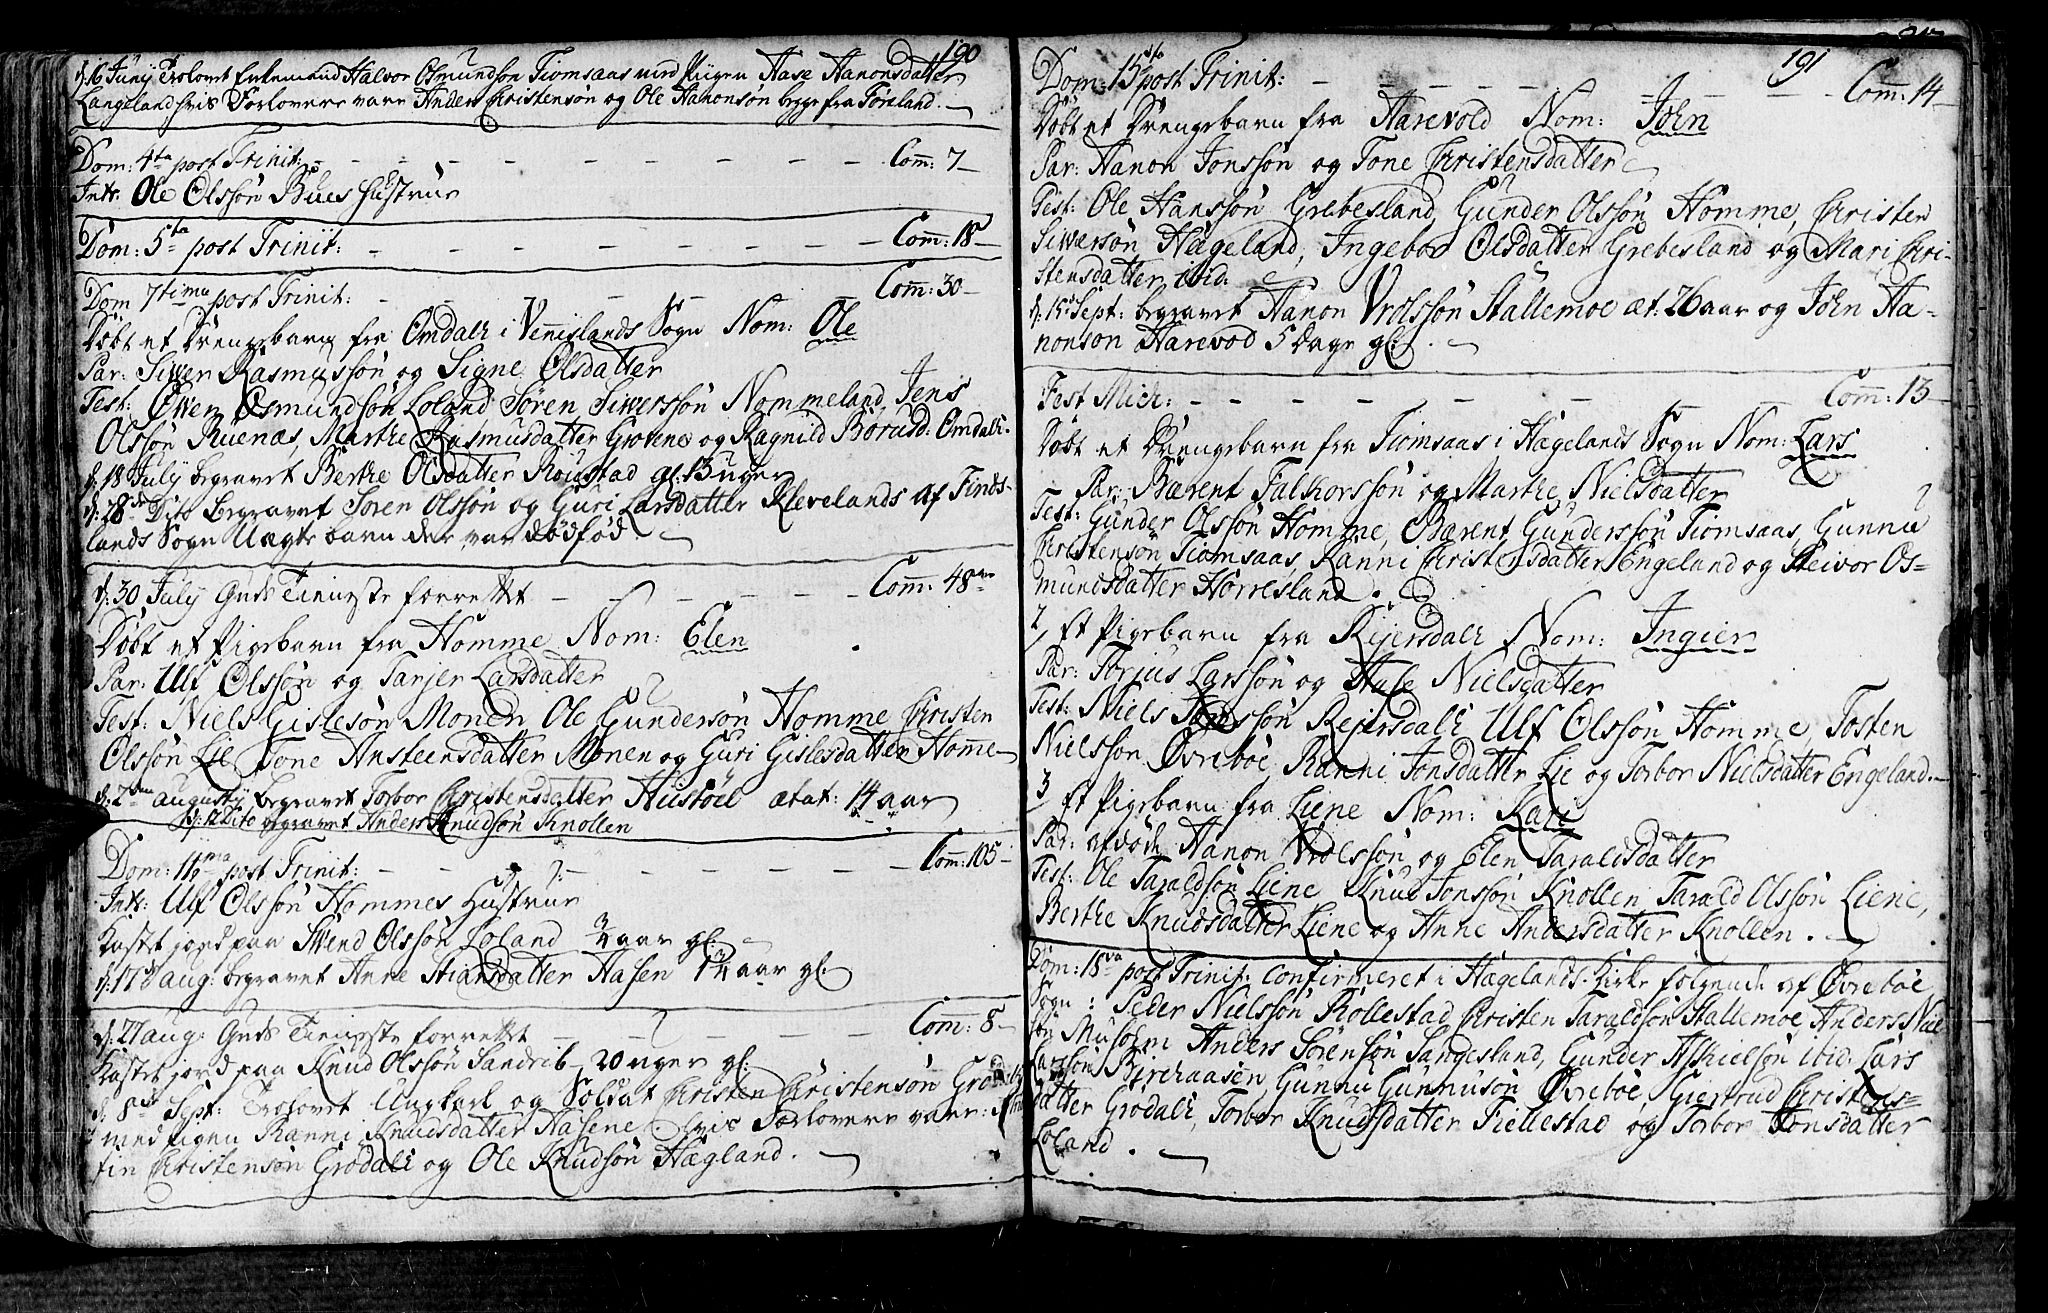 190
d: 6 Junÿ Trolovet Enkemand Halvor Osmundsøn Tiomsaas med Piigen Aase Hanonsdatter
Langeland, hvis Forlovere vare Anders Christensøn og Ole Aanonsøn begge fra Føreland.
Dom: 4ta post Trinit: Com̅: 7
Intr: Ole Olssøn Bues Hustrue
Dom: 5ta post Trinit: Com̅: 18
Dom 7tima post Trinit: Com̅: 30
Døbt et Drengebarn fra Omdal i Vennislands Sogn Nom: Ole
Par: Siwer Rasmussøn og Signe Olsdatter
Test: Owen Osmundsøn Loland Søren Siwerssøn Nommeland, Jens
Olssøn Ruenæs, Marthe Rasmusdatter Grovene og Ragnild Omdal.
d: 18 July begravet Berthe Olsdatter Røiestad gl. 13 uger
d: 28 Dito begravet Søren Olssøn og Guri Larsdatter Klevelands af Finds-
lands Sogn Uægte barn der var dødfød
d: 30 July Guds Tieneste forrettet Com̅: 48
Døbt et Pigebarn fra Homme Nom: Elen
Par: Ulf Olssøn og Tarjer Larsdatter
Test: Niels Gislesøn Monen Ole Gundersøn Homme Christen
Olssøn Lie Tone Ansteensdatter Monen og Guri Gislesdatter Hom̅e
d: 2den augusty begravet Torbor Christensdatter Hustøel ætat: 14 aar
d: 12 Dito begravet Anders Knudsøn Knollen
Dom: 11ma post Trinit: Com̅: 105
Intr: Ulf Olssøn Hommes Hustrue
Kastet jord paa Swend Olssøn Loland 3/4 aar gl:
d: 17 aug: begravet Anne Stiansdatter Aasen 1 3/4 aar gl:
d: 27 aug: Guds Tieneste forrettet Com̅: 8
Kastet jord paa Knud Olssøn Sandrib 20 uger gl:
d: 8 Sept: Trolovet Ungkarl og Soldat Christen Christensøn Grødal
med Pigen Ranni Knudsdatter Aasene. hvis Forlovere vare:
fin Christensøn Grødal og Ole Knudsøn Hægland.
191
Dom: 15ta post Trinit: Com̅: 14
Døbt et Drengebarn fra Aarevold Nom: John
Par: Hanon Jonssøn og Tone Christensdatter
Test: Ole Hanssøn Grebesland, Gunder Olssøn Homme, Christen
Siwersøn Hægeland, Ingebor Olsdatter Grebesland og Mari Chri-
stensdatter ibid.
d: 15 Sept: begravet Hanon Vrolssøn Stallemoe æt: 26 aar og John Ha-
nonson Aarevod 5 Dage gl:
Fest Mich: Com̅: 13
Døbt et Drengebarn fra Tiomsaas i Hægelands Sogn Nom: Lars
1. Par: Bærent Falkorssøn og Marthe Nielsdatter
Test: Gunder Olssøn Homme, Bærent Gunderssøn Tiomsaas, Gunnu
Christensøn Tiomsaas, Ranni Christensdatter Engeland og Steivor Os-
mundsdatter Horresland.
2, Et Pigebarn fra Reiersdal Nom: Ingier
Par: Torjus Larssøn og Aase Nielsdatter
Test: Niels Reiersdal Ulf Olssøn Homme, Tosten
Nielsson Øvrebøe, Ranni Jonsdatter Lie og Torbor Nielsdatter Engeland.
3, Et Pigebarn fra Liene Nom: Kari
Par: afdøde Hanon Vrolssøn og Elen Taraldsdatter
Test: Ole Taraldsøn Liene Knud Jonssøn Knollen, Tarald Olssøn Liene,
Berthe Knudsdatter Liene og Anne Andersdatter Knollen.
Dom: 18va post Trinit: confirmeret i Hægelands Kirke følgende af Øvrebøe
Sogn: Peder Nielssøn Røllestad Christen Taraldsøn Stallemoe, Anders Niel-
søn Anders Sørensøn Langesland, Gunder Askielsøn ibid. Lars
Larssøn Birchaasen, Gunnu Gunnusøn Øvrebøe, Giertrud Christens-
datter Grødal, Torbor Knudsdatter Fiellestad og Torbor Jonsdatter
Loland.